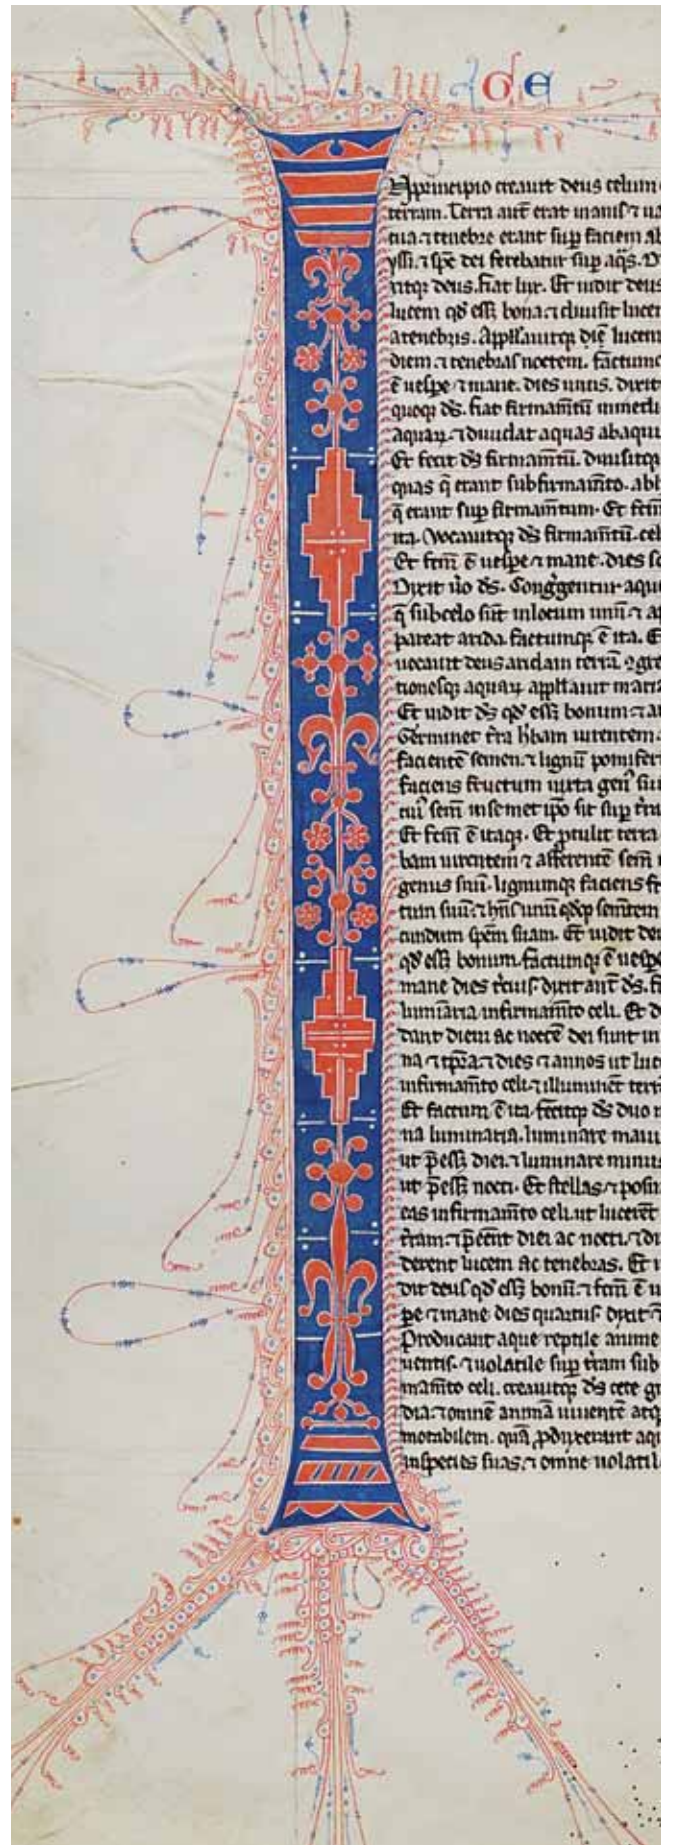 G E
Nprincipio creauit deus celum
terram. Terra aut̄ erat inanis ⁊ ua
cua. ⁊ tenebre erant sup̱ faciem ab
yssi. ⁊ sp̄c dei ferebatur sup̱ aq̄s. D
ixitqꝫ deus. Fiat lux. Et uidit deus
lucem qd̓ eēt bona. ⁊ diuisit lucem
atenebris. Appll̓auitqꝫ diē lucem
diem ⁊ tenebras noctem. factumq
ē uesp̱e ⁊ mane. dies unus. dixit
quoqꝫ d̄s. fiat firmam̄tū inmedi
aquaꝝ. ⁊ diuidat aquas abaqui
Et fecit d̄s firmam̄tū. diuisitqꝫ
quas q̄ erant subfirmam̄to. abh
q̄ erant sup̱ firmam̄tum. Et fc̄m
ita. Vocauitqꝫ d̄s firmam̄tū. cel
Et fc̄m ē uesp̱e ⁊ mane. dies sc
Dixit u̓o d̄s. Cong̓gentur aque
q̄ subcelo sūt inlocum unū ⁊ ap
pareat arida. factumqꝫ ē ita. E
uocauit deus aridam terrā. ꝯgre
tionesqꝫ aquaꝝ appll̓auit maria
Et uidit d̄s qd̓ eēt bonum ⁊ ai
Germinet t̓ra h̓bam uirentem
facientē semen. ⁊ lignū pomifer
faciens fructum iuxta gen̓ suū
cui̓ sem̄ insemet ip̄o sit sup̱ t̓rā
Et fc̄m ē itaqꝫ. Et ꝓtulit terra
bam uirentem ⁊ afferentē sem̄
genus suū. lignumqꝫ faciens fr
tum suū. ⁊ hn̄s unū qd̓qꝫ sem̄tem
cundum sp̄em suam. Et uidit deu
qd̓ eēt bonum. factumqꝫ ē uesp̱e
mane dies t̓cius. dixit aut̄ d̄s. f
luminaria infirmam̄to celi. Et d
dant diem ac noctē dei sunt in
na ⁊ tp̱̄ra. ⁊ dies ⁊ annos ut luc
infirmam̄to celi. ⁊ illuminēt terr
Et factum ē ita. fecitqꝫ d̄s duo m
na luminaria. luminare maiu
ut p̄eēt diei. ⁊ luminare minus
ut p̄eēt nocti. Et stellas. ⁊ posu
eas infirmam̄to celi. ut lucerēt
t̓ram. ⁊ p̄eēnt diei ac nocti. ⁊ di
derent lucem ac tenebras. Et u
dit deus qd̓ eēt bonū. ⁊ fc̄m ē u
pe ⁊ mane dies quartus. dixit
Producant aque reptile anime
uentis. ⁊ uolatile sup̱ t̓ram sub
mam̄to celi. creauitqꝫ d̄s cete gr
dia. ⁊ omnē animā uiuentē atqꝫ
motabilem. quā ꝓduxerant aqu
inspecies suas. ⁊ omne uolatil